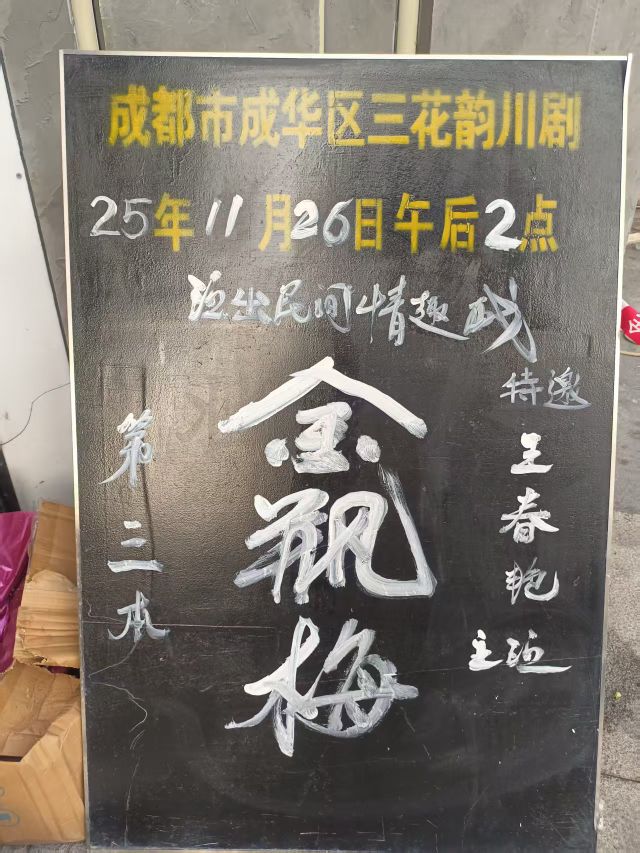 成都市成华区三花韵川剧
25年11月26日午后2点
演出民间情趣戏
特邀
王春艳
主演
金瓶梅
第三本